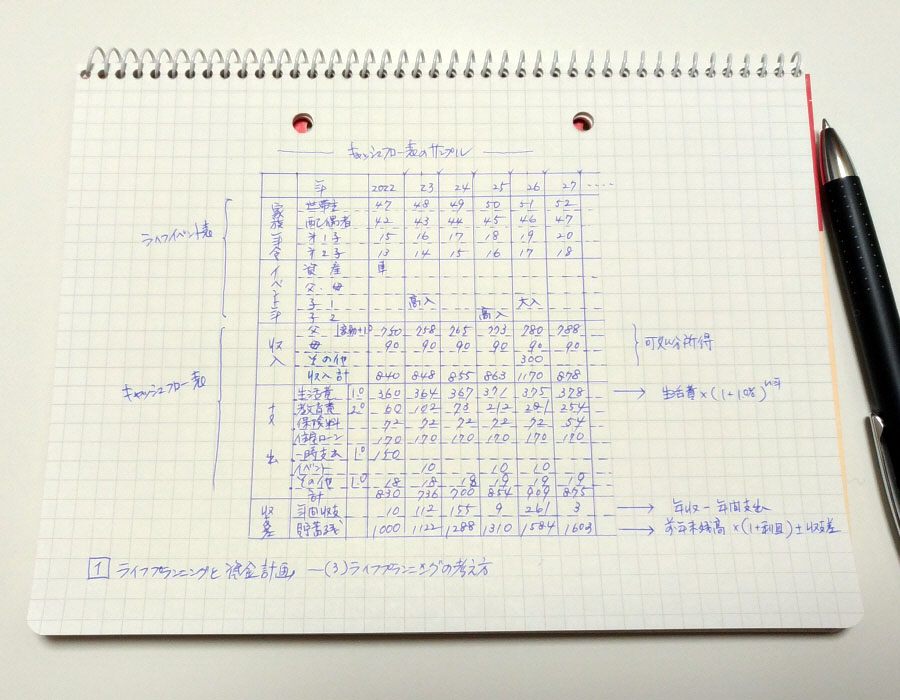 キャッシュフロー表のサンプル
年 2022 23 24 25 26 27
ライフイベント表
家族年令
世帯主 47 48 49 50 51 52
配偶者 42 43 44 45 46 47
第1子 15 16 17 18 19 20
第2子 13 14 15 16 17 18
イベント
資産 車
父・母
子1 高入 大入
子2 高入
キャッシュフロー表
収入
父 750 758 765 773 780 788
母 90 90 90 90 90 90
その他 300
収入計 840 848 855 863 1170 878
可処分所得
支出
生活費 1.0 360 364 367 371 375 378 → 生活費×(1+1.0%)
教育費 2.0 60 102 73 212 254
保険料 72 72 72 72 72 54
住宅ローン 170 170 170 170 170 170
一時支出 1.0 150
イベント 10 10 10
その他 1.0 18 18 18 19 19 19
計 830 736 700 854 909 875
収支 年間収支 10 112 155 9 261 3 → 年収-年間支出
貯蓄残 1000 1122 1288 1310 1584 1603 → 前年末残高×(1+利回)±収支差
1 ライフプランニングと資金計画 ―(3)ライフプランニングの考え方